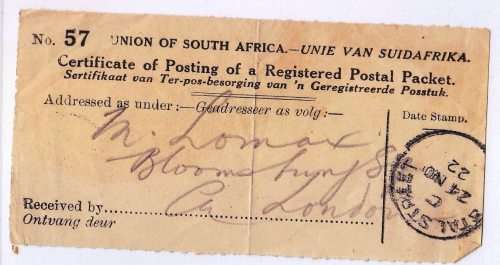 No. 57 UNION OF SOUTH AFRICA.—UNIE VAN SUIDAFRIKA.
Certificate of Posting of a Registered Postal Packet.
Sertifikaat van Ter-pos-besorging van 'n Geregistreerde Posstuk.
Addressed as under:—Geadresseer as volg:—
M. Lomax
Bloomsbury S
London
Received by
Ontvang deur
Date Stamp.
TAL STREET
C
24 NOV
22